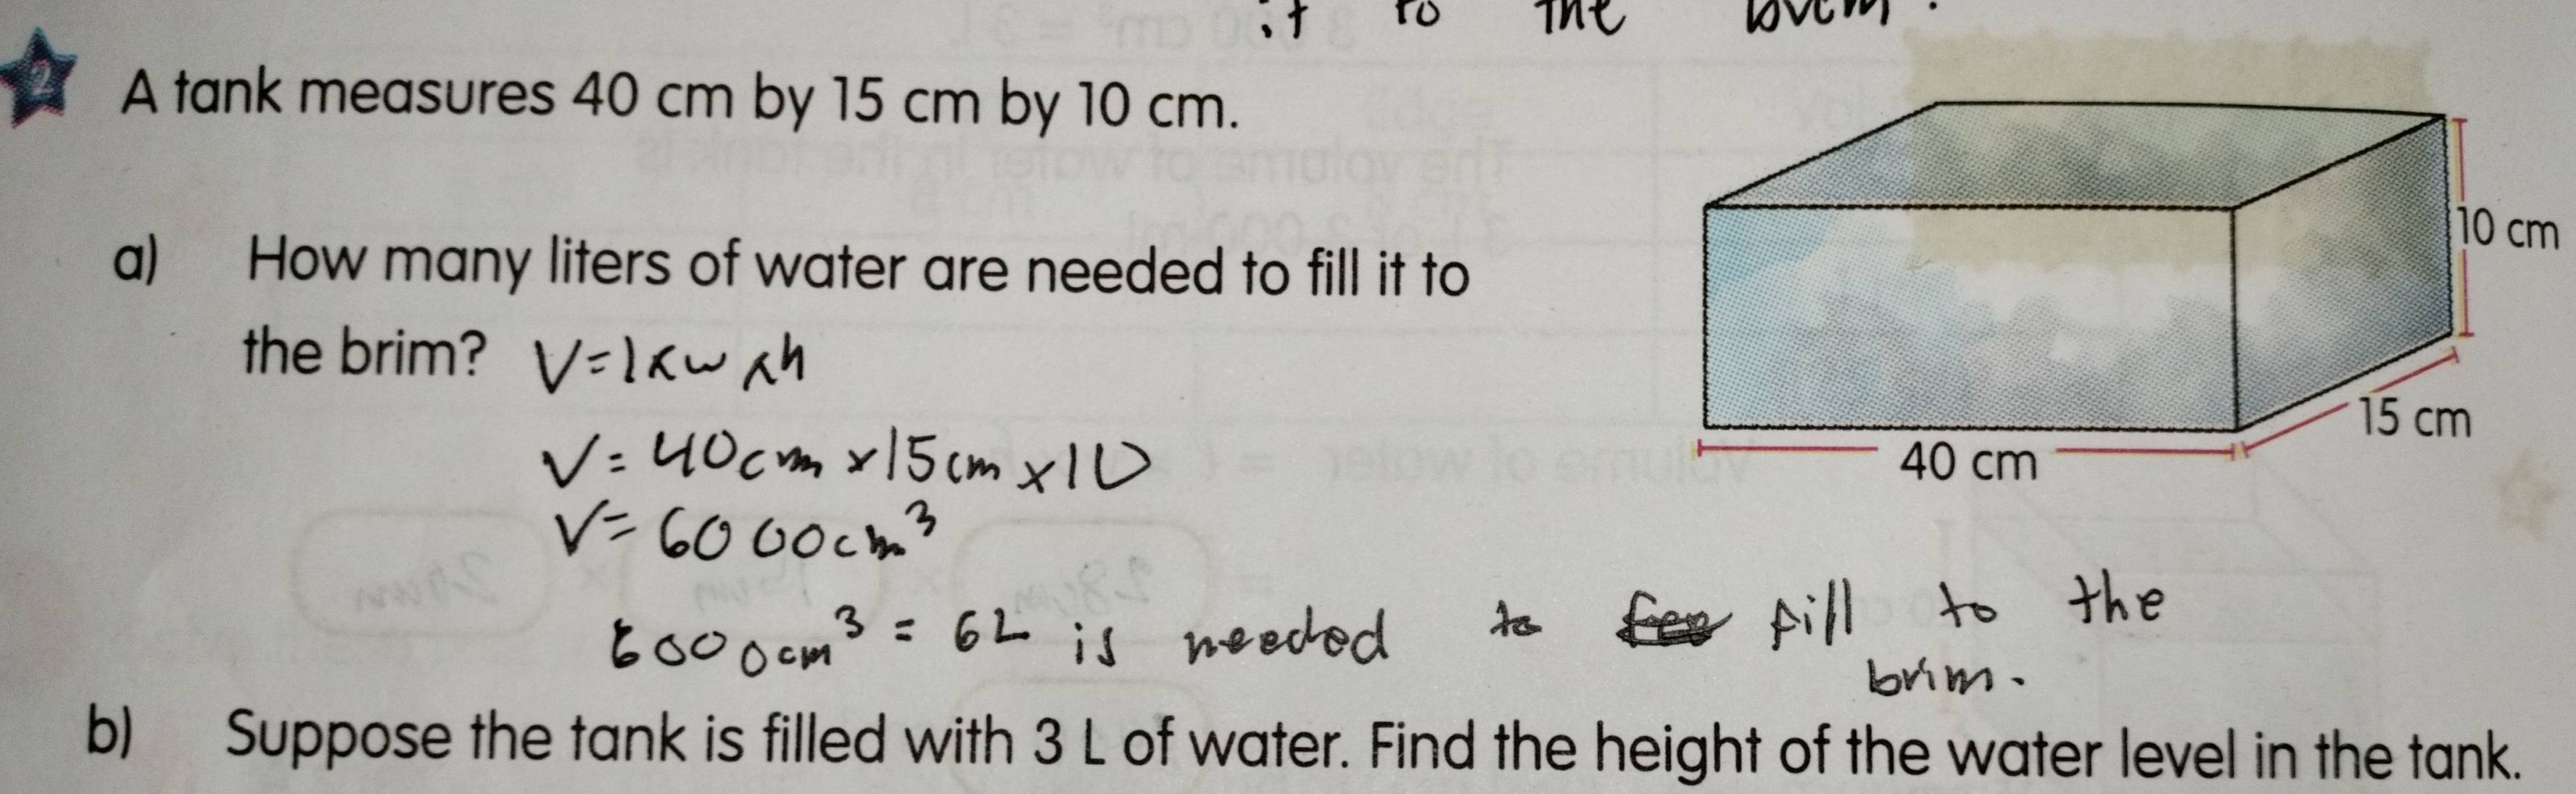 it to the brim.
2 A tank measures 40 cm by 15 cm by 10 cm.
10 cm
15 cm
40 cm
a) How many liters of water are needed to fill it to
the brim? V=l×w×h
V=40cm×15cm×10
V=6000cm³
6000cm³=6L is needed to fill to the
brim.
b) Suppose the tank is filled with 3 L of water. Find the height of the water level in the tank.